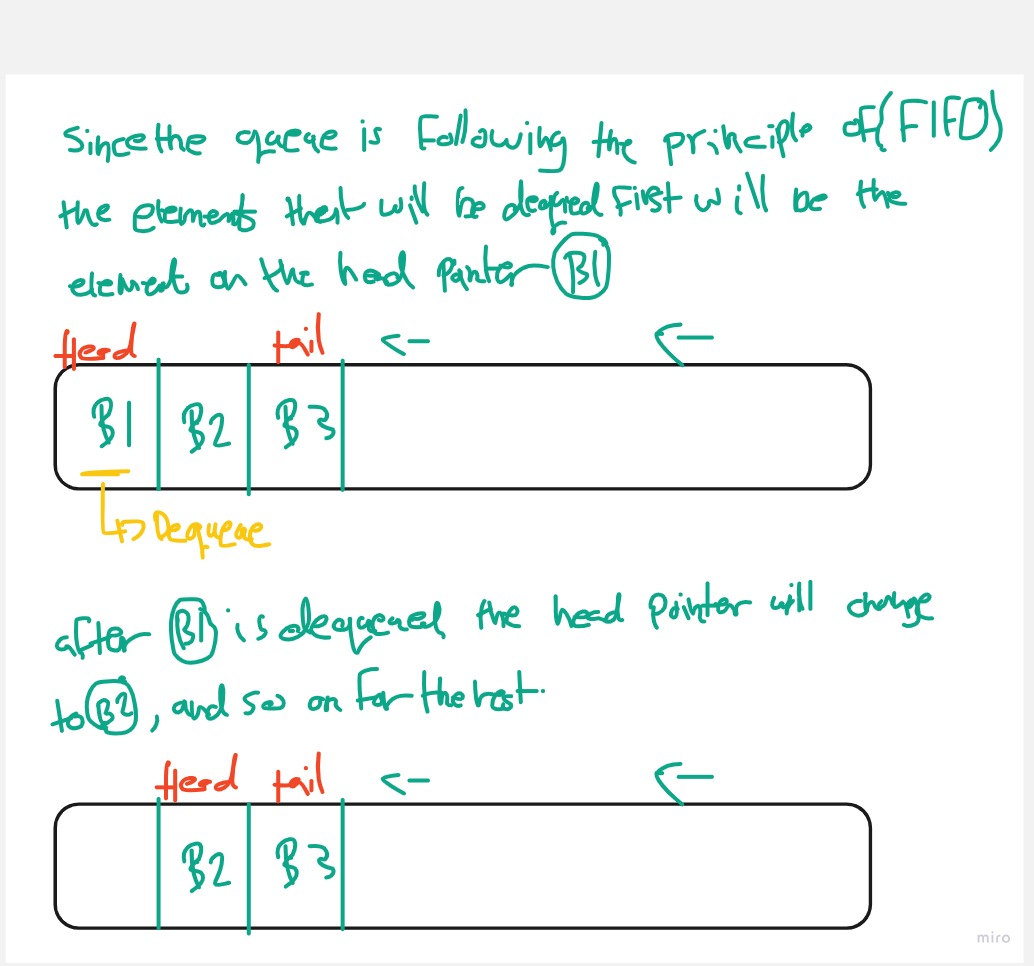 Since the queue is Following the principle oF (FIFO)
the elements that will be dequed First will be the
element on the head pointer B1
Head tail
B1 B2 B3
Dequeue
after B1 is dequeued the head pointer will change
to B2, and so on For the rest.
Head tail
B2 B3
miro